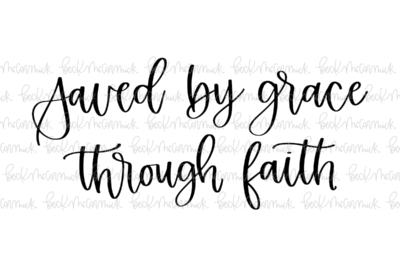 Saved by grace
through faith